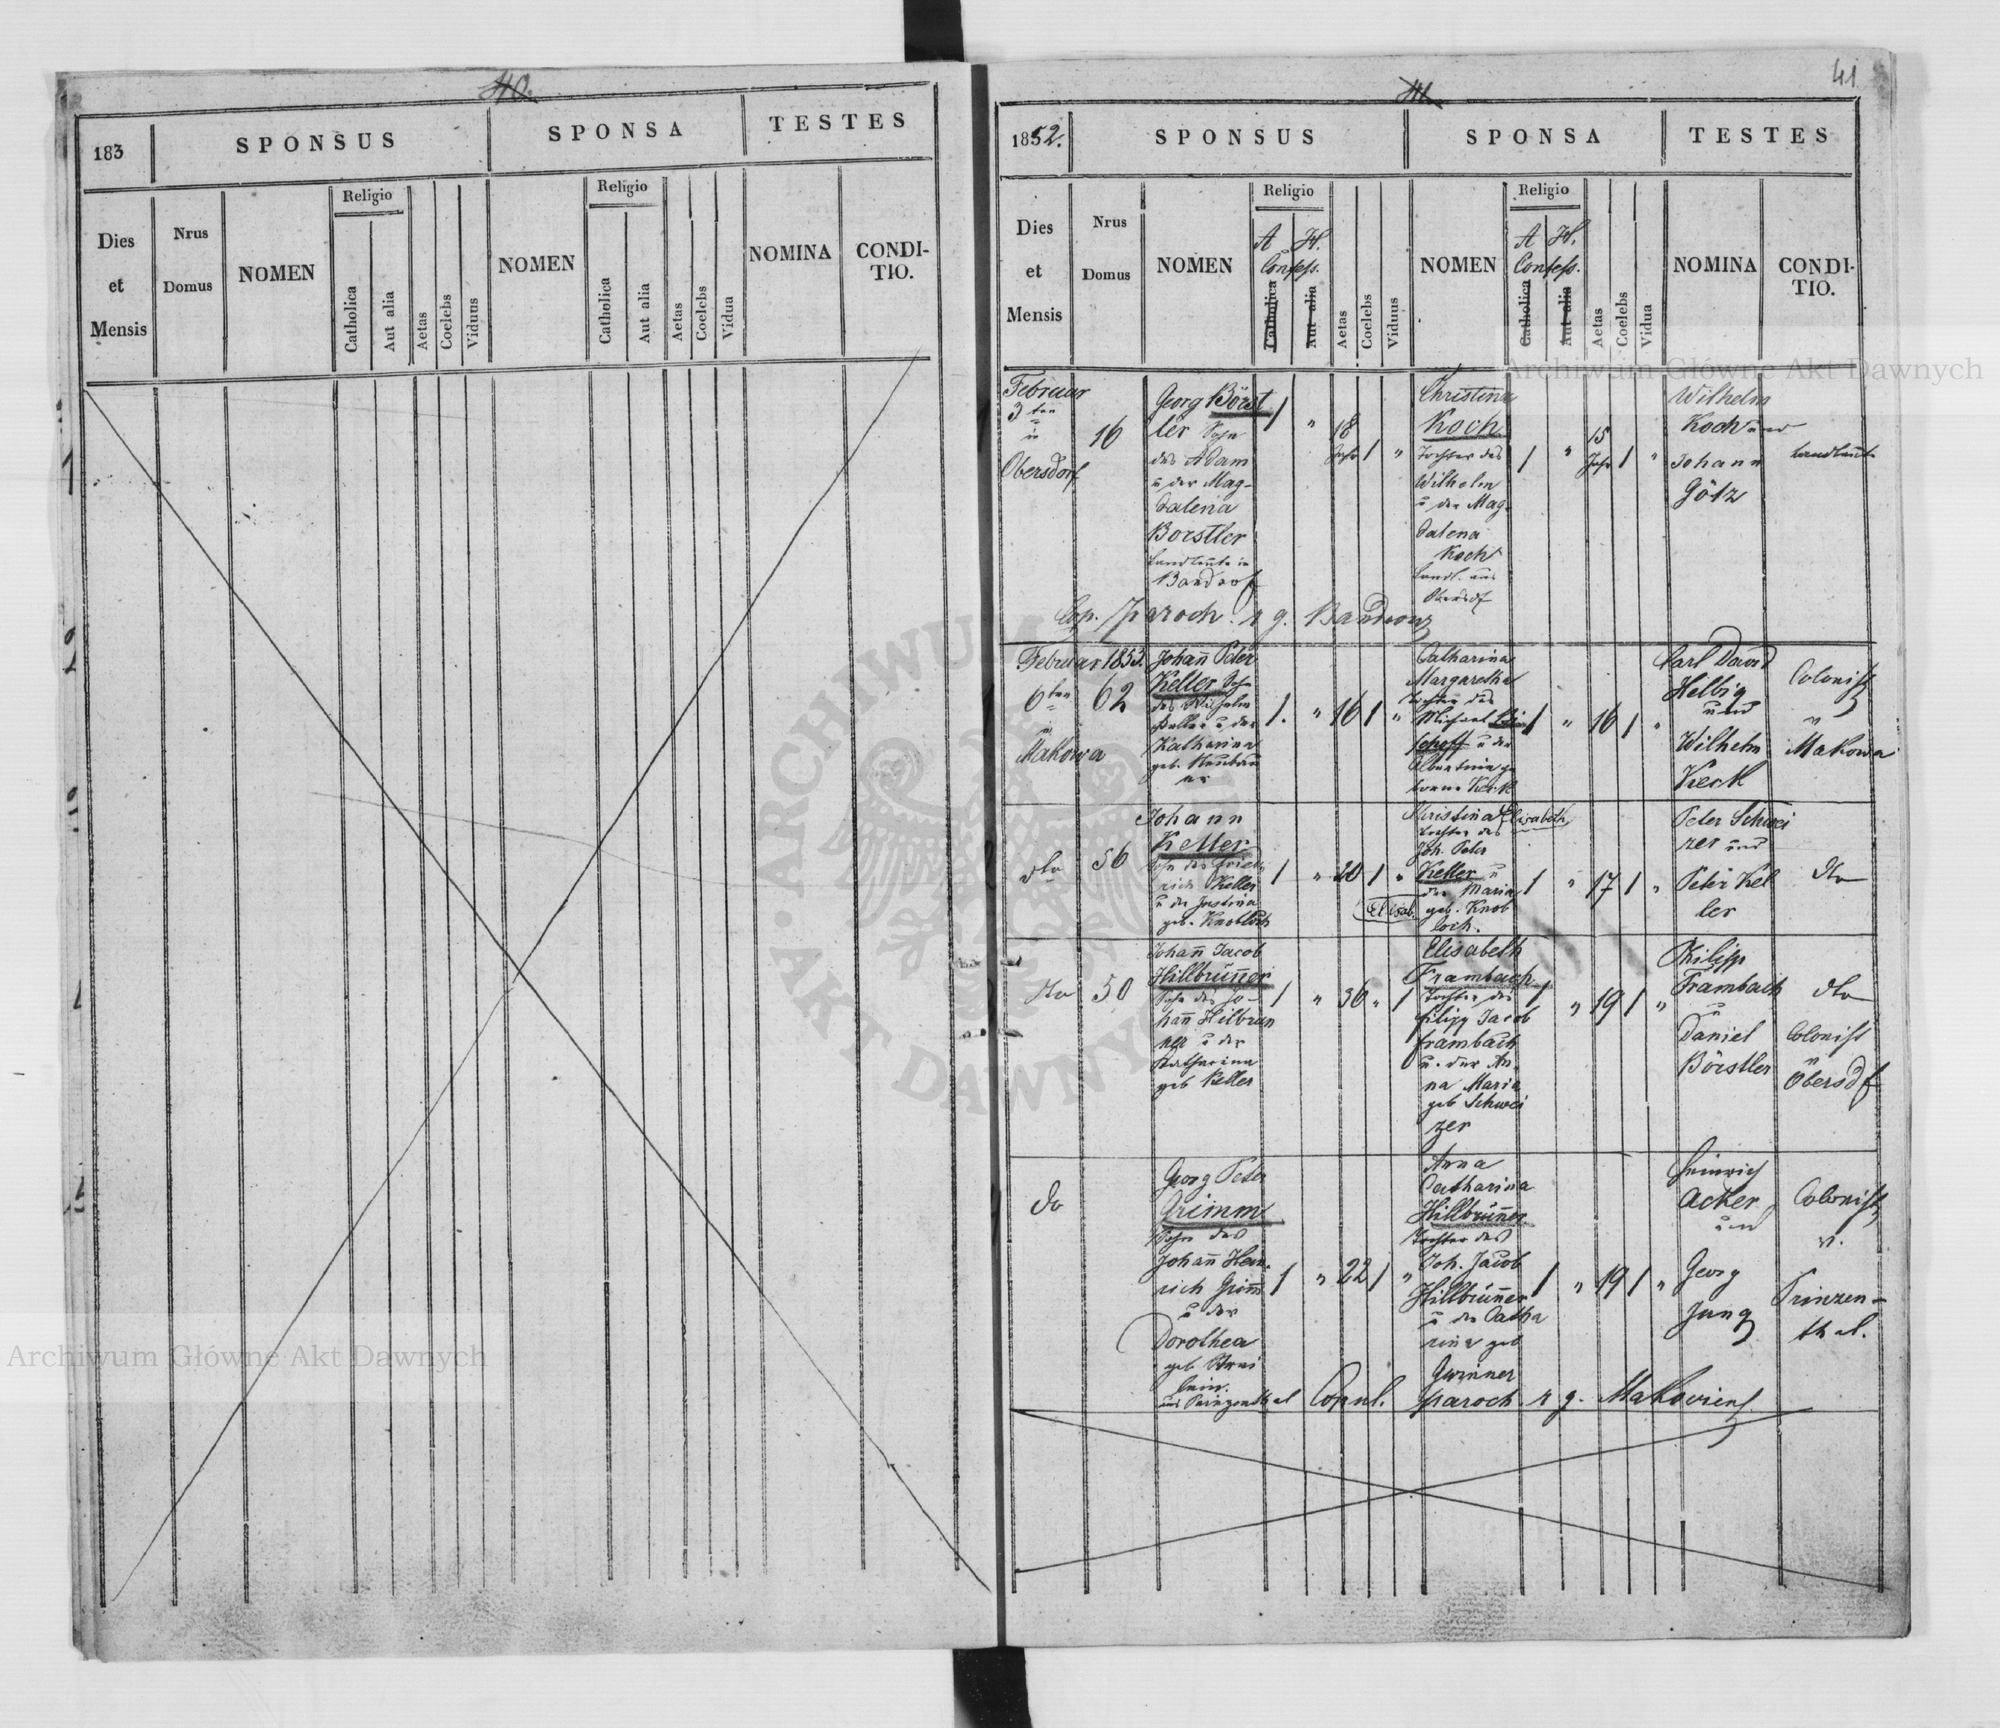 40.
183
SPONSUS
SPONSA
TESTES
Dies
et
Mensis
Nrus
Domus
NOMEN
Religio
Catholica
Aut alia
Aetas
Coelebs
Viduus
NOMEN
Religio
Catholica
Aut alia
Aetas
Coelebs
Vidua
NOMINA
CONDI-
TIO.
41
41.
1852.
SPONSUS
SPONSA
TESTES
Dies
et
Mensis
Nrus
Domus
NOMEN
Religio
A H.
Confess.
Catholica
Aut alia
Aetas
Coelebs
Viduus
NOMEN
Religio
A H.
Confess.
Catholica
Aut alia
Aetas
Coelebs
Vidua
NOMINA
CONDI-
TIO.
Februar
3ten
in
Obersdorf
16
Georg Börst
ler Sohn
des Adam
u der Mag-
dalena
Borstler
Landleute in
Bandrof
1
"
18
Jahr
1
"
Christina
Koch
Tochter des
Wilhelm
u der Mag-
dalena
Koch
Landl. aus
Obersdf
1
"
15
Jahr
1
"
Wilhelm
Koch und
Johann
Götz
Landleute
Cop. paroch. r g. Bandrow
Februar 1853.
6ten
in
Makowa
62
Johañ Peter
Keller Sohn
des Wilhelm
Keller u der
Katharina
geb. Neubau
er
1.
"
16
1
"
Catharina
Margaretha
Tochter des
Michael
u der
Albertina ge
borne Keck
1
"
16
1
"
Carl David
Helbig
und
Wilhelm
Keck
Colonist
v
Makowa
dto
56
Johann
Keller
Sohn des Fried
rich Keller
u der Justina
geb. Knobloch
1
"
20
1
"
Elisab.
Christina Elisabeth
Tochter des
Joh. Peter
Keller u
der Maria
geb. Knob
loch.
1
"
17
1
"
Peter Schwei
zer und
Peter Kel
ler
dto
dto
50
Johañ Jacob
Hillbrüñer
Sohn des Jo-
hañ Hilbrun
ner u der
Katharina
geb Keller
1
"
36
"
1
Elisabeth
Frambach
Tochter des
Filipp Jacob
Frambach
u. der An-
na Maria
geb Schwei
zer
1
"
19
1
"
Philipp
Frambach
u
Daniel
Börstler
dto
Colonist
v
Obersdf
do
Georg Peter
Grimm
Sohn des
Johañ Hein-
rich Grim̃
u der
Dorothea
geb
aus Prinzenthal
1
"
22
1
"
Anna
Catharina
Hillbrüñer
Tochter des
Joh. Jacob
Hillbrüñer
u der Catha
rina geb
Gwinner
1
"
19
1
"
Heinrich
Acker
und
Georg
Jung
Colonist
v.
Prinzen-
thal.
Copul. paroch. r g. Makoviens
Archiwum Główne Akt Dawnych
Archiwum Główne Akt Dawnych
ARCHIWUM GŁÓWNE · AKT DAWNYCH ·